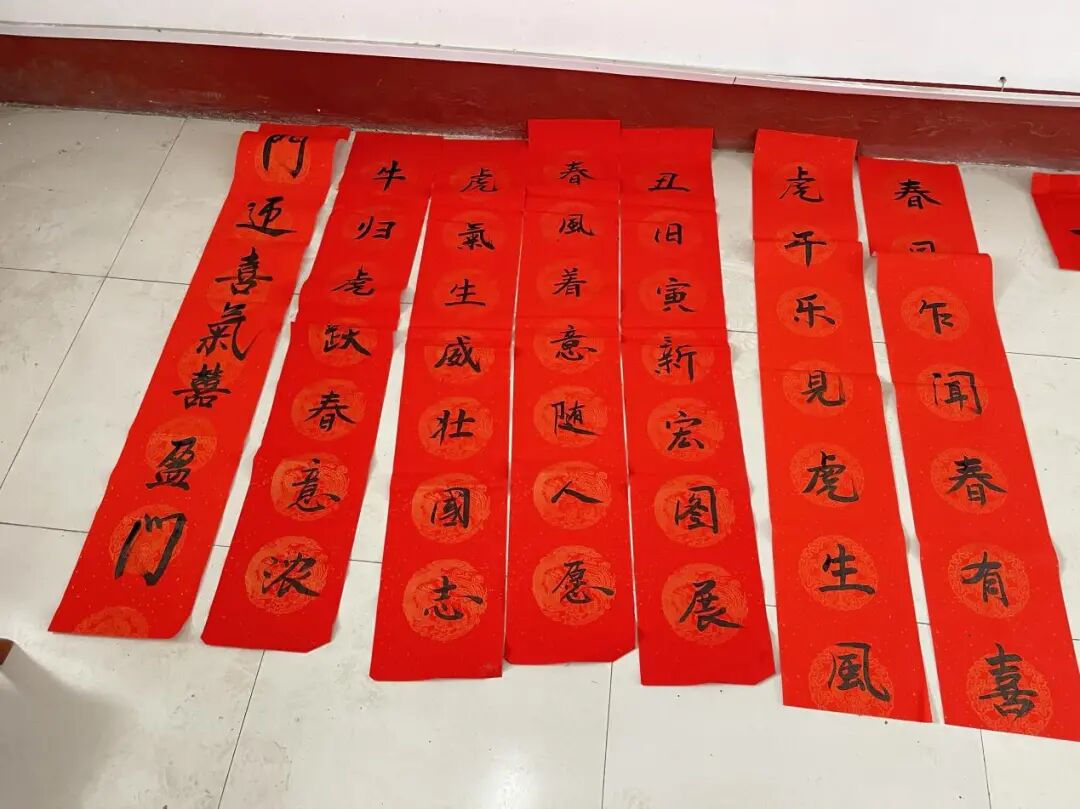 春乍闻春有喜
虎年乐见虎生風
丑旧寅新宏图展
春風着意随人愿
虎氣生威壮國志
牛归虎跃春意浓
門迎喜氣囍盈门